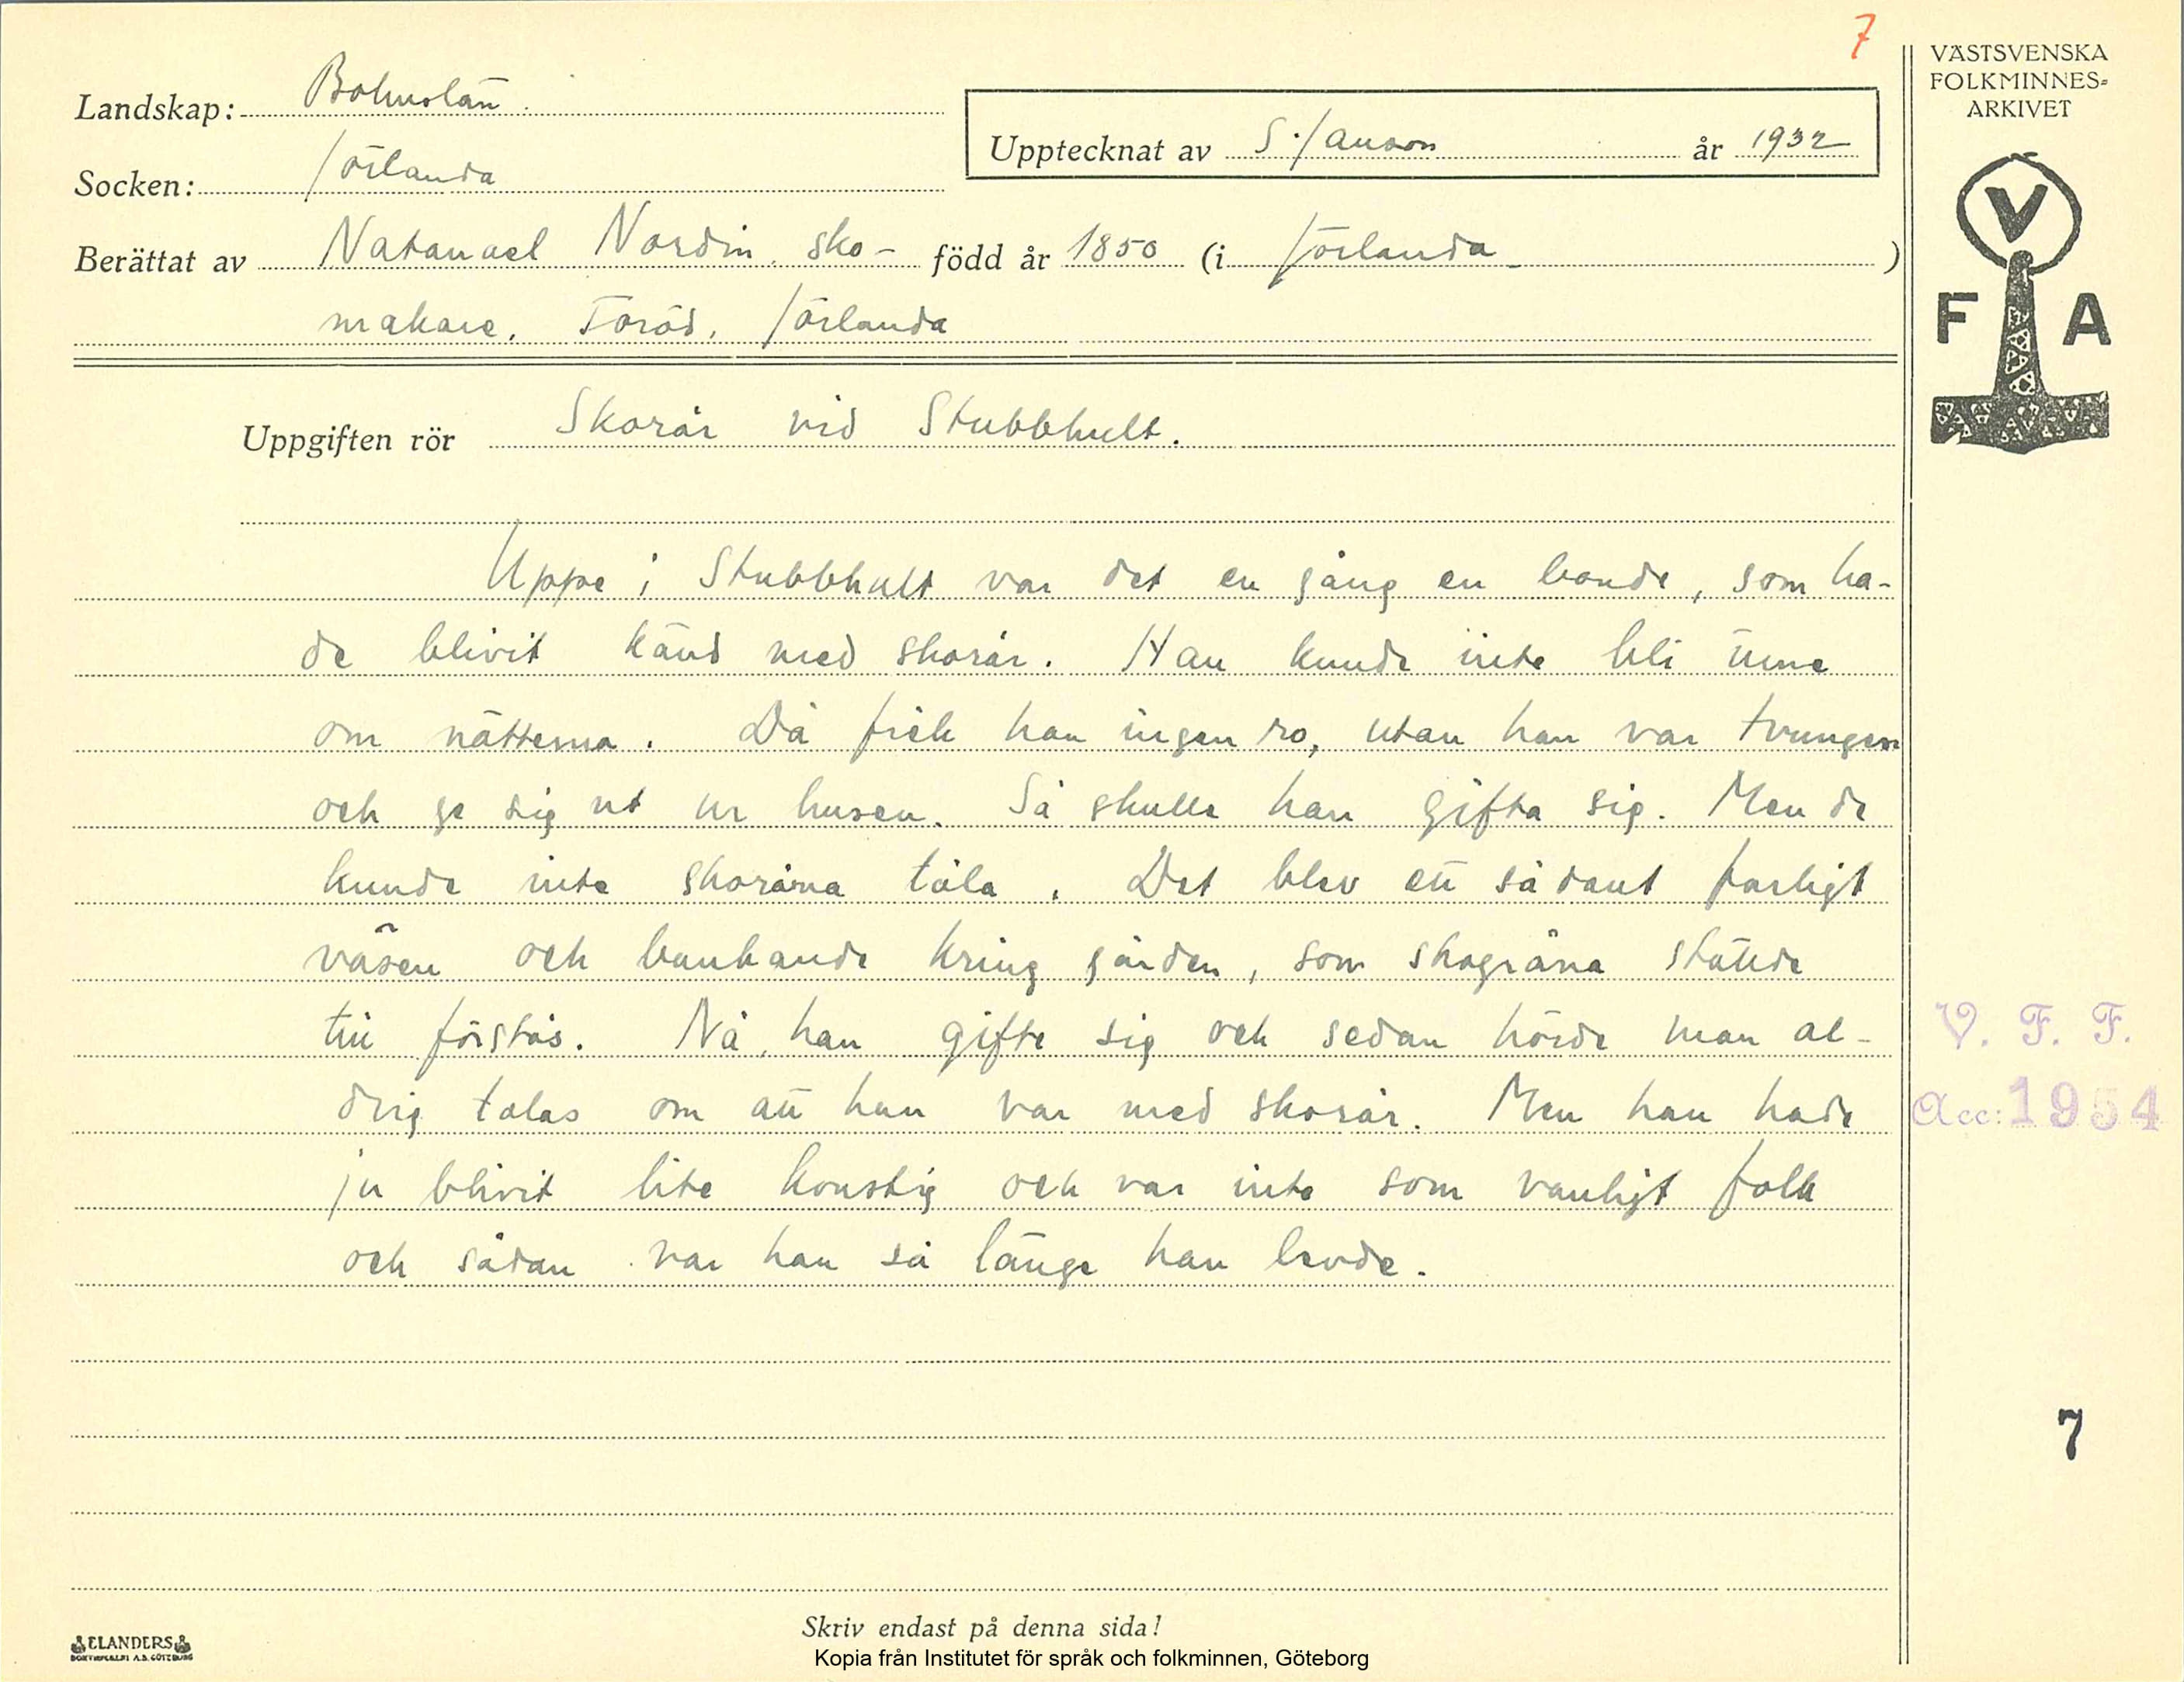 7
VÄSTSVENSKA
FOLKMINNES=
ARKIVET
Landskap: Bohuslän
Upptecknat av S. Janson år 1932
Socken: Jörlanda
Berättat av Natanael Nordin, sko- född år 1850 (i Jörlanda )
makare, Toröd, Jörlanda
V
F A
Uppgiften rör Skorår vid Stubbhult.
Uppe i Stubbhult var det en gång en bonde, som ha-
de blivit känd med skorår. Han kunde inte bli inne
om nätterna. Då fick han ingen ro, utan han var tvungen
och ge sig ut ur husen. Så skulle han gifta sig. Men de
kunde inte skoråna tåla. Det blev ett sådant farligt
väsen och bankande kring gården, som skogråna ställde
till förstås. Nå, han gifte sig och sedan hörde man al-
drig talas om att han var med skorår. Men han hade
ju blivit lite konstig och var inte som vanligt folk
och sådan var han så länge han levde.
V. F. F.
Acc: 1954
7
Skriv endast på denna sida!
ELANDERS
BOKTRYCKERI A.B. GÖTEBORG
Kopia från Institutet för språk och folkminnen, Göteborg